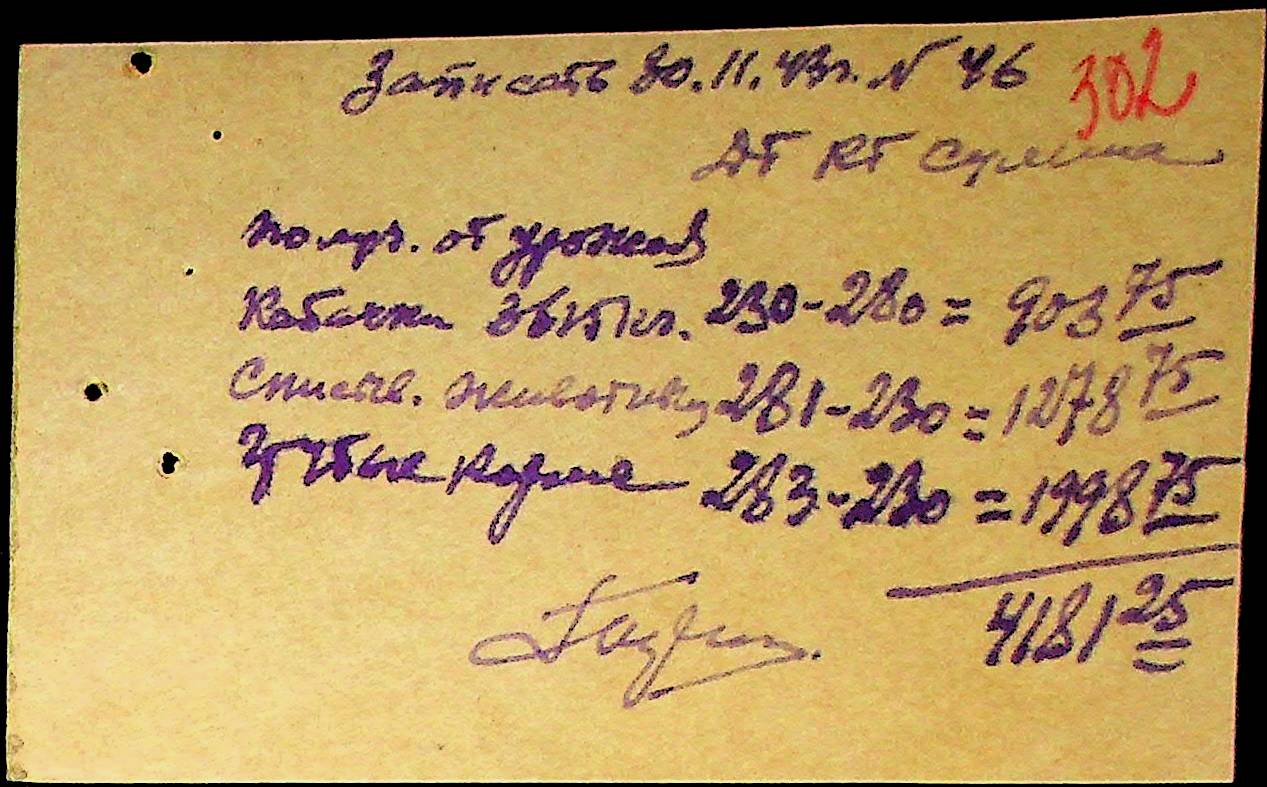 Записать 30.11.43г. № 46
302
ДТ КТ Сумма
получ. от урожая
Кабачки 3615 кг. 230-280 = 903 75
Списыв. животнов 281-230 = 1278 75
Грубые корма 283-230 = 1998 75
4181 25